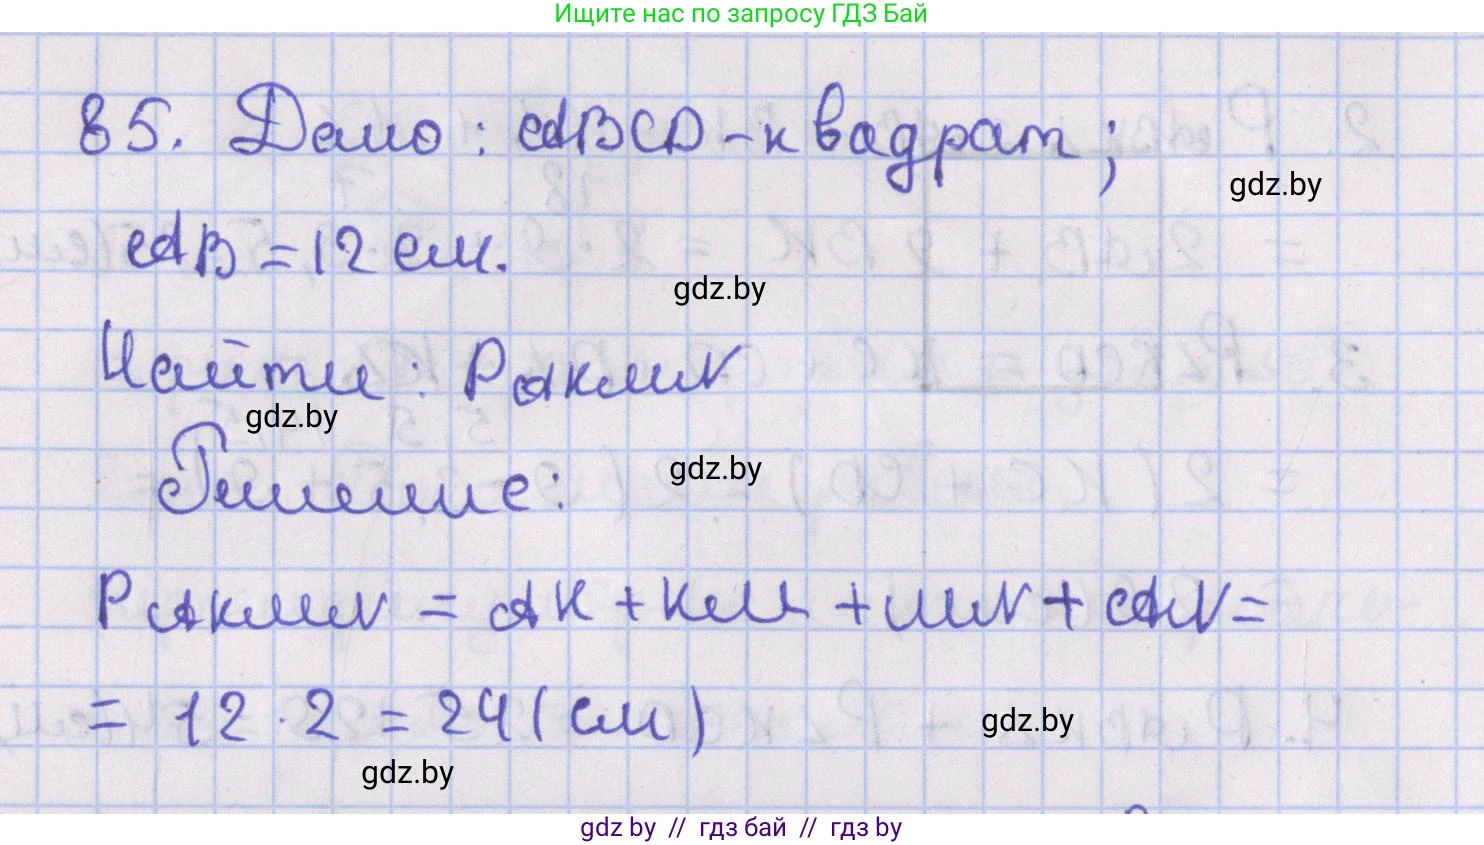 Ищите нас по запросу ГДЗ Бай
85. Дано: ABCD - квадрат;
gdz.by
AB = 12 см.
gdz.by
Найти: PAKMN
gdz.by
Решение:
gdz.by
PAKMN = AK + KM + MN + AN =
= 12 · 2 = 24 (см)
gdz.by
gdz.by
gdz by // гдз бай // гдз by